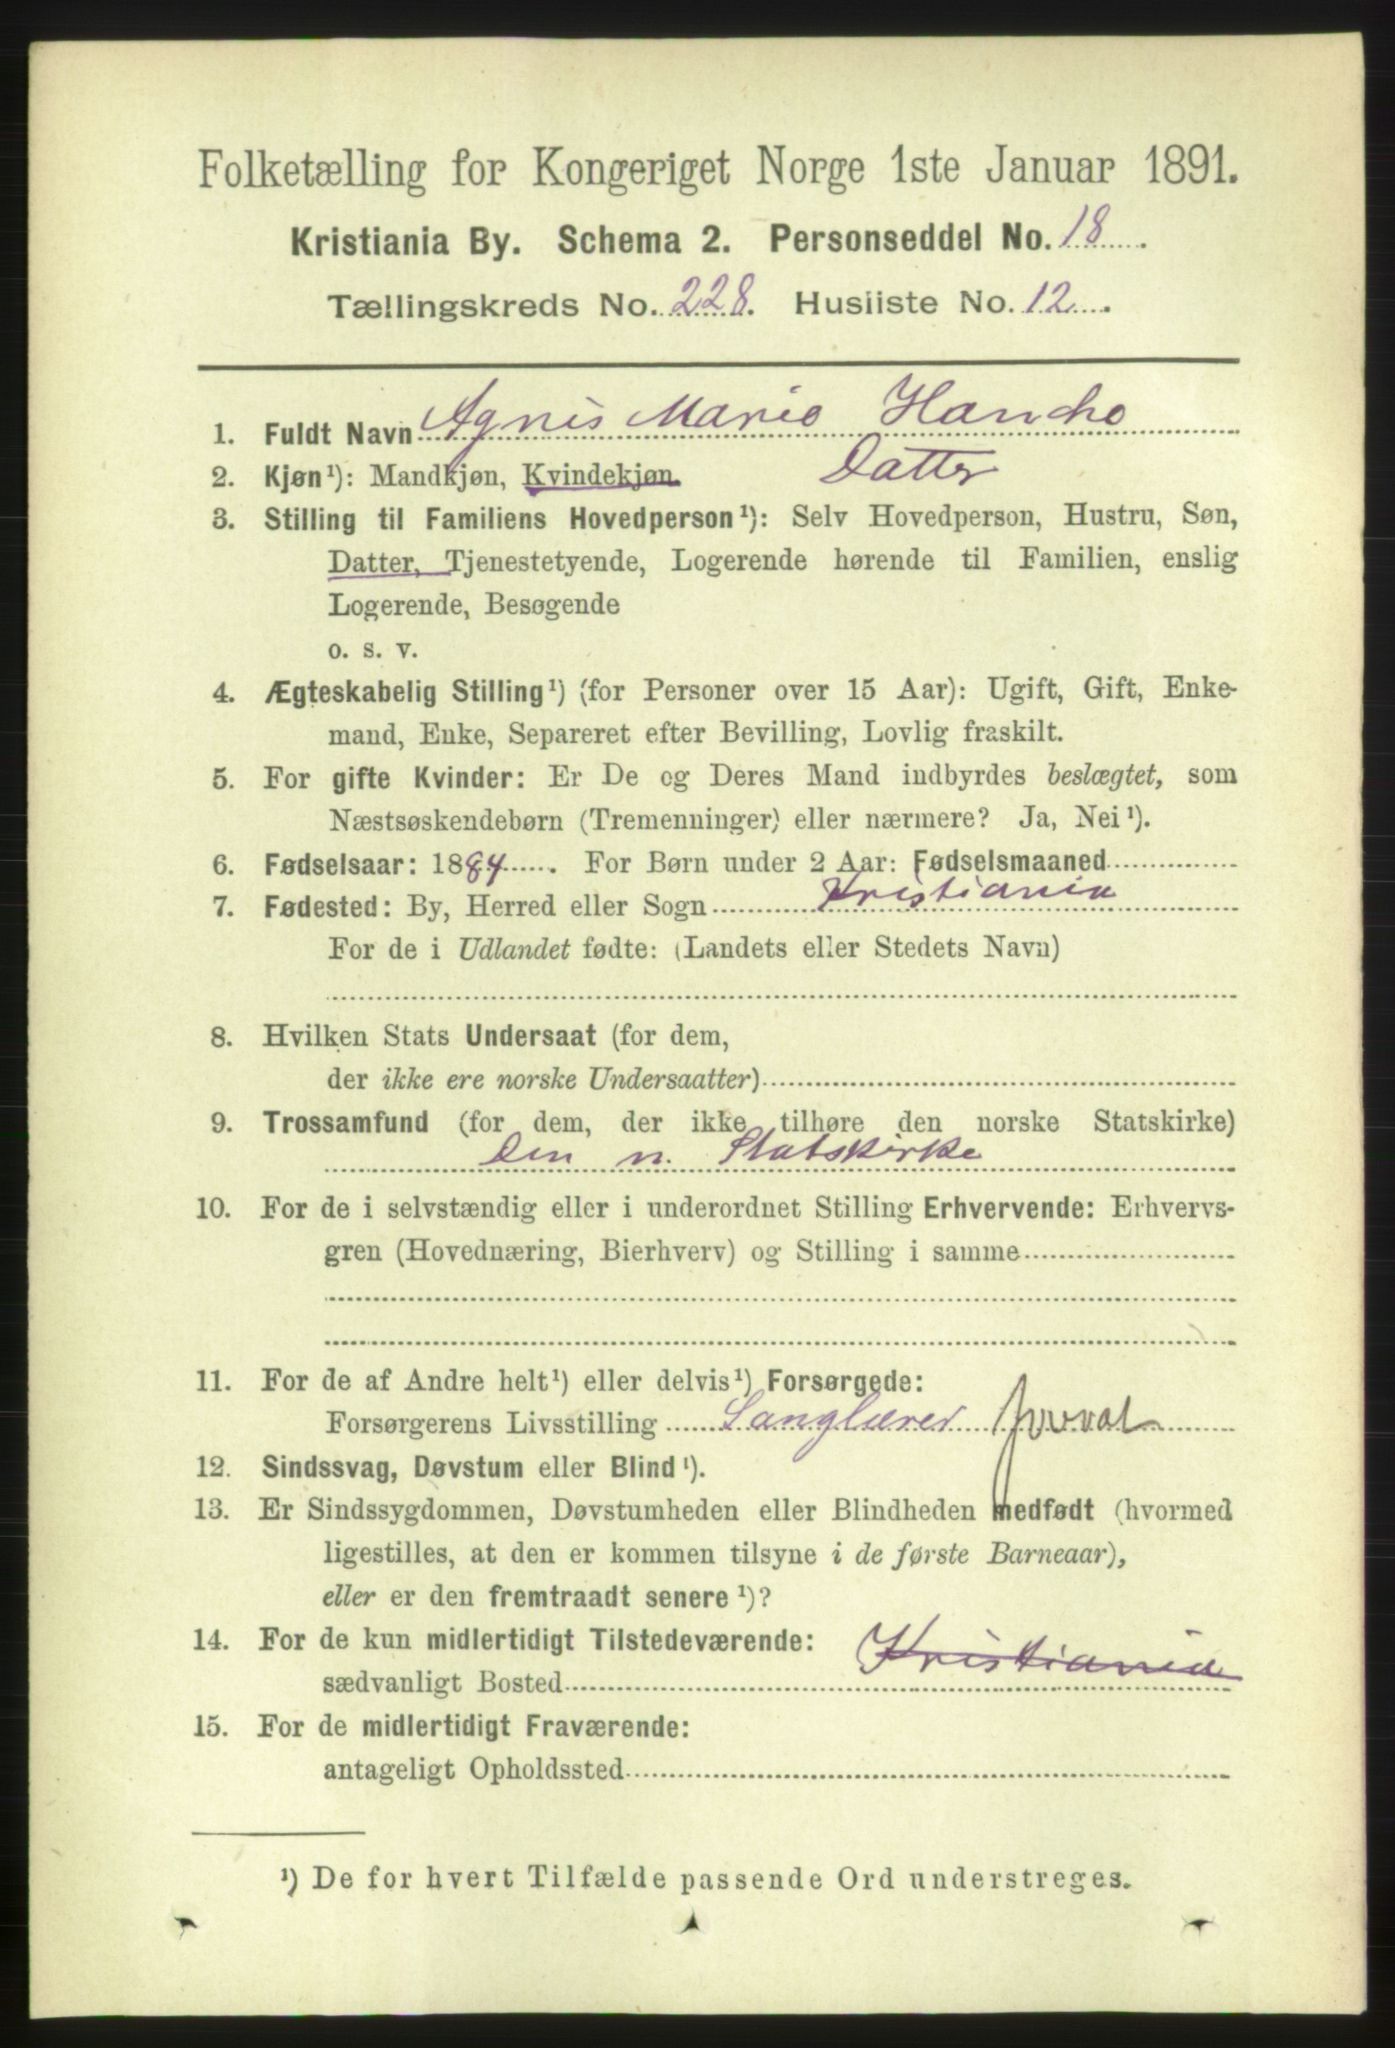 Folketælling for Kongeriget Norge 1ste Januar 1891.
Kristiania By. Schema 2. Personseddel No. 18
Tællingskreds No. 228. Husliste No. 12
1. Fuldt Navn Agnis Marie Hancho
2. Kjøn¹): Mandkjøn, Kvindekjøn. Datter
3. Stilling til Familiens Hovedperson¹): Selv Hovedperson, Hustru, Søn,
Datter, Tjenestetyende, Logerende hørende til Familien, enslig
Logerende, Besøgende
o. s. v.
4. Ægteskabelig Stilling¹) (for Personer over 15 Aar): Ugift, Gift, Enke-
mand, Enke, Separeret efter Bevilling, Lovlig fraskilt.
5. For gifte Kvinder: Er De og Deres Mand indbyrdes beslægtet, som
Næstsøskendebørn (Tremenninger) eller nærmere? Ja, Nei¹).
6. Fødselsaar: 1884. For Børn under 2 Aar: Fødselsmaaned
7. Fødested: By, Herred eller Sogn Kristiania
For de i Udlandet fødte: (Landets eller Stedets Navn)
8. Hvilken Stats Undersaat (for dem,
der ikke ere norske Undersaatter)
9. Trossamfund (for dem, der ikke tilhøre den norske Statskirke)
Den n. Statskirke
10. For de i selvstændig eller i underordnet Stilling Erhvervende: Erhvervs-
gren (Hovednæring, Bierhverv) og Stilling i samme
11. For de af Andre helt¹) eller delvis¹) Forsørgede:
Forsørgerens Livsstilling Sanglærer
12. Sindssvag, Døvstum eller Blind¹).
13. Er Sindssygdommen, Døvstumheden eller Blindheden medfødt (hvormed
ligestilles, at den er kommen tilsyne i de første Barneaar),
eller er den fremtraadt senere¹)?
14. For de kun midlertidigt Tilstedeværende: Kristiania
sædvanligt Bosted
15. For de midlertidigt Fraværende:
antageligt Opholdssted
¹) De for hvert Tilfælde passende Ord understreges.